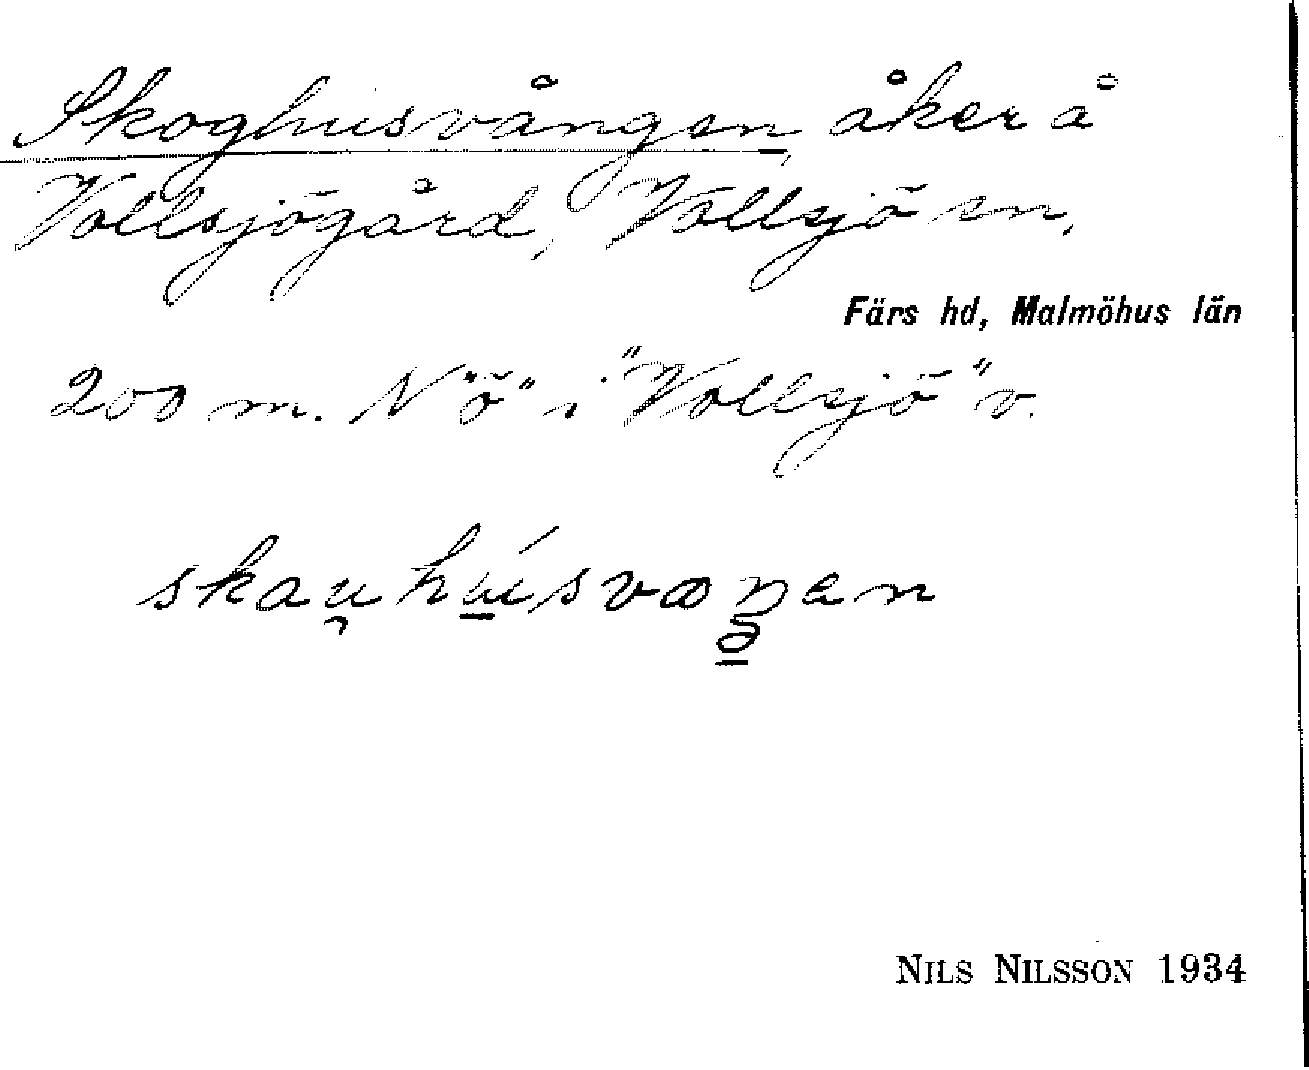 Skoghusvången, åker å
Vollsjögård, Vollsjö sn,
Färs hd, Malmöhus län
200 m. N "ö" i "Vollsjö" v.
skau̯hu̱ísvaŋen
NILS NILSSON 1934